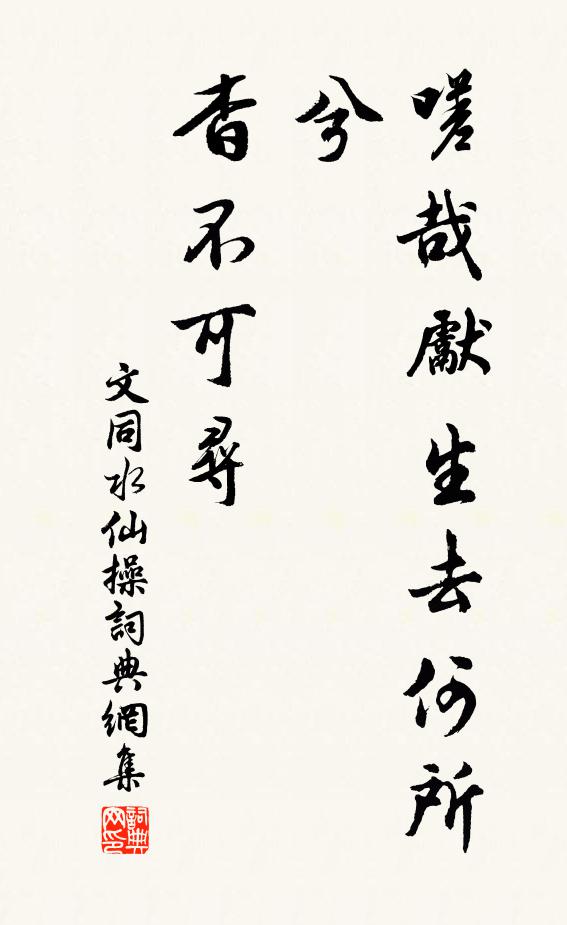 嗟哉獻生去何所
兮
杳不可尋
文同水仙操詞典網集
詞典
网印